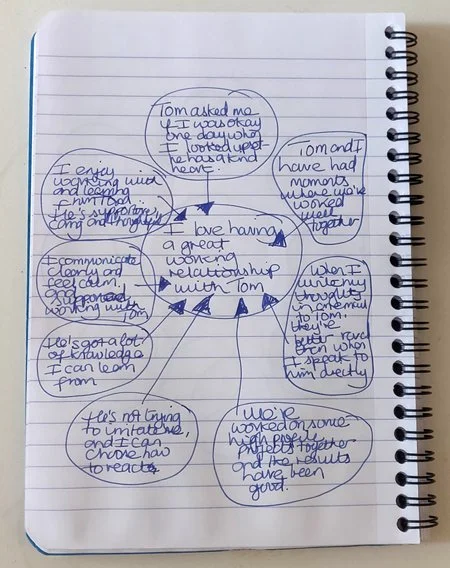 Tom asked me
if I was okay
one day when
I looked upset
he has a kind
heart.
Tom and I
have had
moments
where we've
worked
well
together
I enjoy
working with
and learning
from Tom.
He's supportive,
caring and thoughtful
I love having
a great
working
relationship
with Tom
I communicate
clearly and
feel calm,
and
working with
Tom
When I
write my
thoughts
in an email
to Tom,
they're
better rec'd
than when
I speak to
him directly
He's got a lot
of knowledge
I can learn
from
He's not trying
to irritate me,
and I can
choose how
to react
We're
worked on some
high profile
projects together
and the results
have been
good.